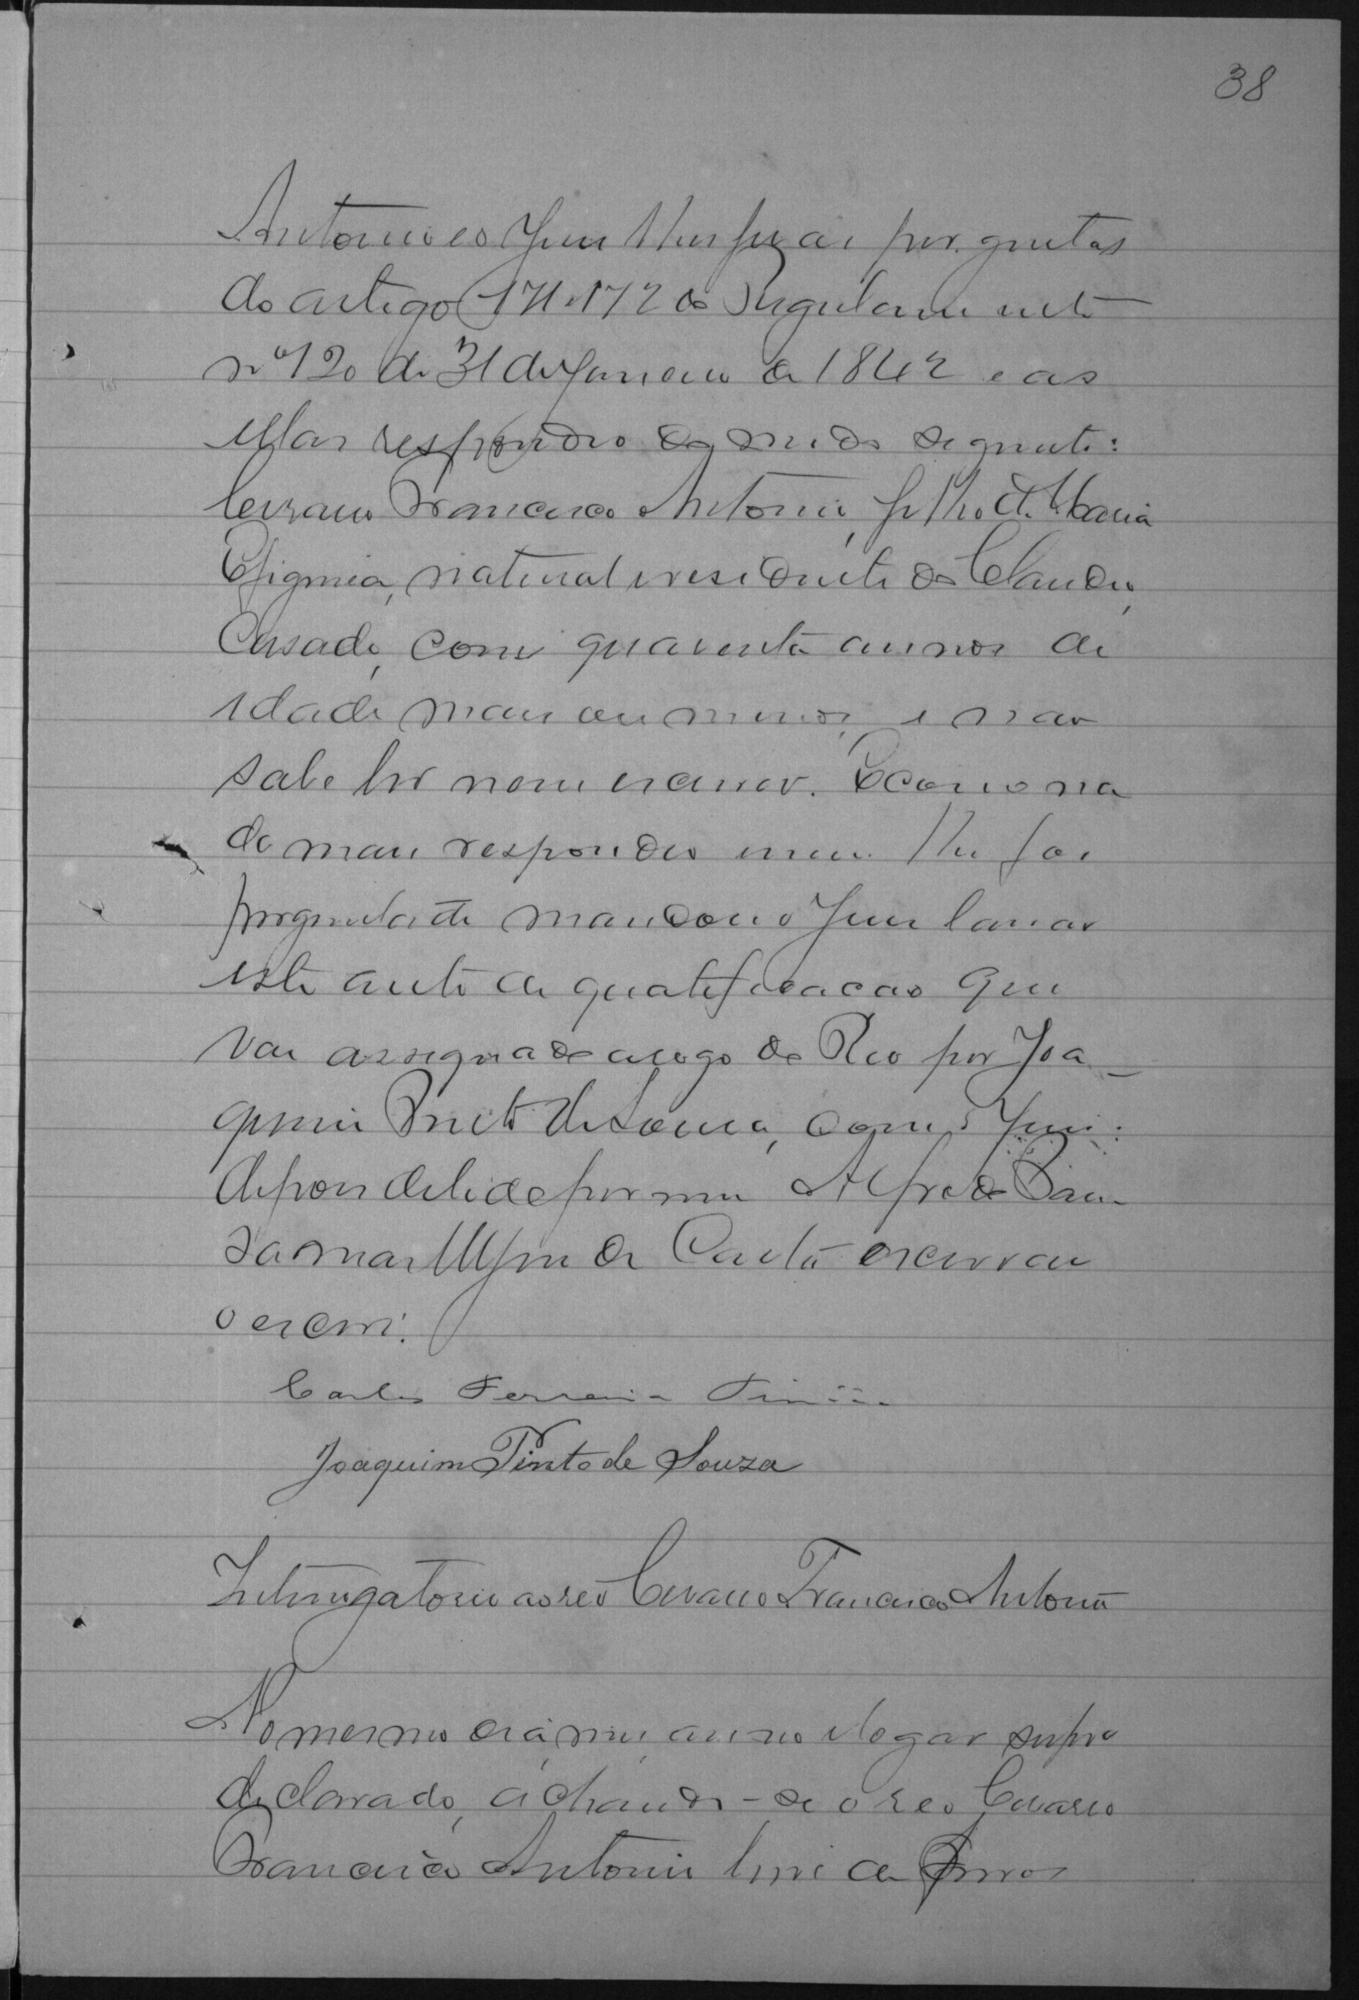 38
Antonio e o Juiz lhe fez as perguntas
do artigo 171 e 172 do Regulamento
nº 120 de 31 de Janeiro de 1842 e as
ellas respondeo do modo seguinte:
Francisco Antonio, filho de Maria
Efigenia, natural e residente do Claudio,
Casado, com quarenta annos de
idade mais ou menos, e não
sabe ler nem escrever. E como na
da mais respondeo nem lhe foi
perguntado mandou o Juiz lavrar
este auto de qualificacao que
vai assignado a rogo do Reo por Joa_
quim Pinto de Souza, com o Juiz
depois de lido por mim Alfredo
da Costa escrivão
o escrevi.
Carlos Ferreira
Joaquim Pinto de Souza
Interrogatorio ao reo Francisco Antonio
No mesmo dia, mez, anno e logar supra
declarado, achando-se o reo
Francisco Antonio livre de ferros